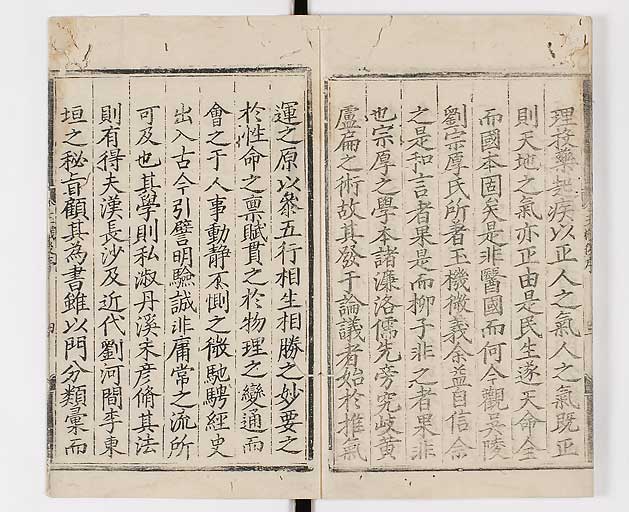 理投藥起疾以正人之氣人之氣既正
則天地之氣亦正由是民生遂天命全
而國本固矣是非醫國而何今觀吳陵
劉宗厚氏所著玉機微義余益自信余
之是和言者果是而柳子非之者果非
也宗厚之學本諸濂洛儒先旁究岐黄
盧扁之術故其發于論議者始於推氣
運之原以叅五行相生相勝之妙要之
於性命之禀賦貫之於物理之變通而
會之于人事動靜不惻之微馳騁經史
出入古今引譬明驗誠非庸常之流所
可及也其學則私淑丹溪朱彦脩其法
則有得夫漢長沙及近代劉河間李東
垣之秘旨顧其為書雖以門分類彙而